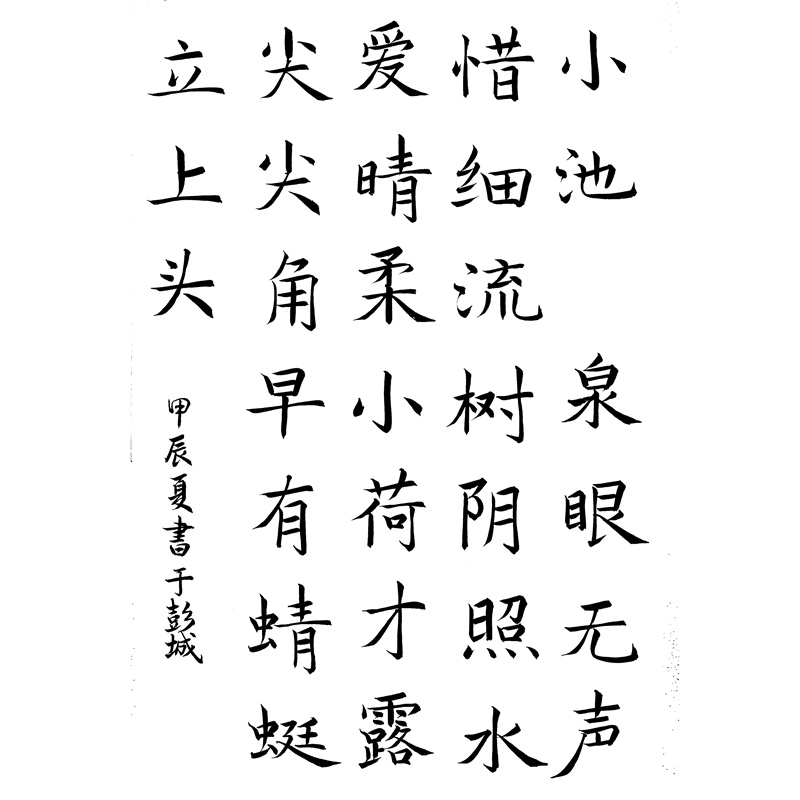 小池 泉眼无声
惜细流树阴照水
爱晴柔小荷才露
尖尖角早有蜻蜓
立上头
甲辰夏書于彭城